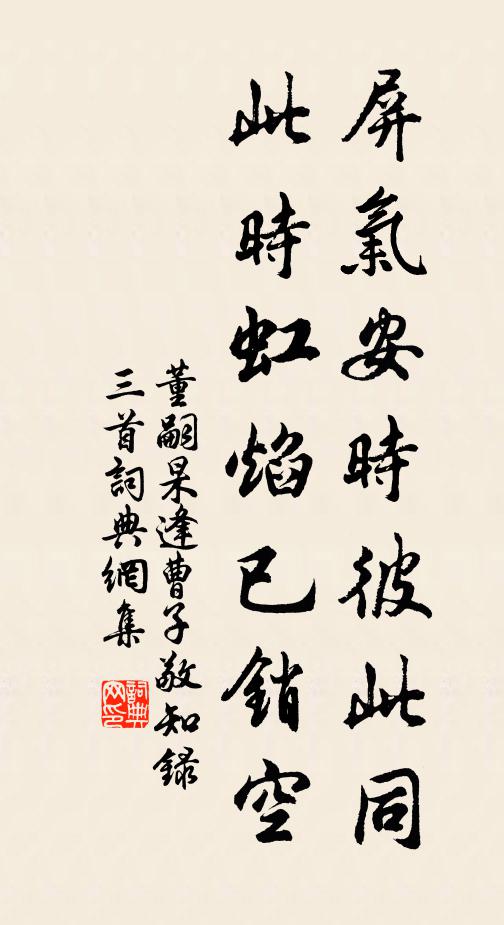 屏氣安時彼此同
此時虹焰已銷空
董嗣杲逢曹子敬知錄
三首詞典網集
詞典網印